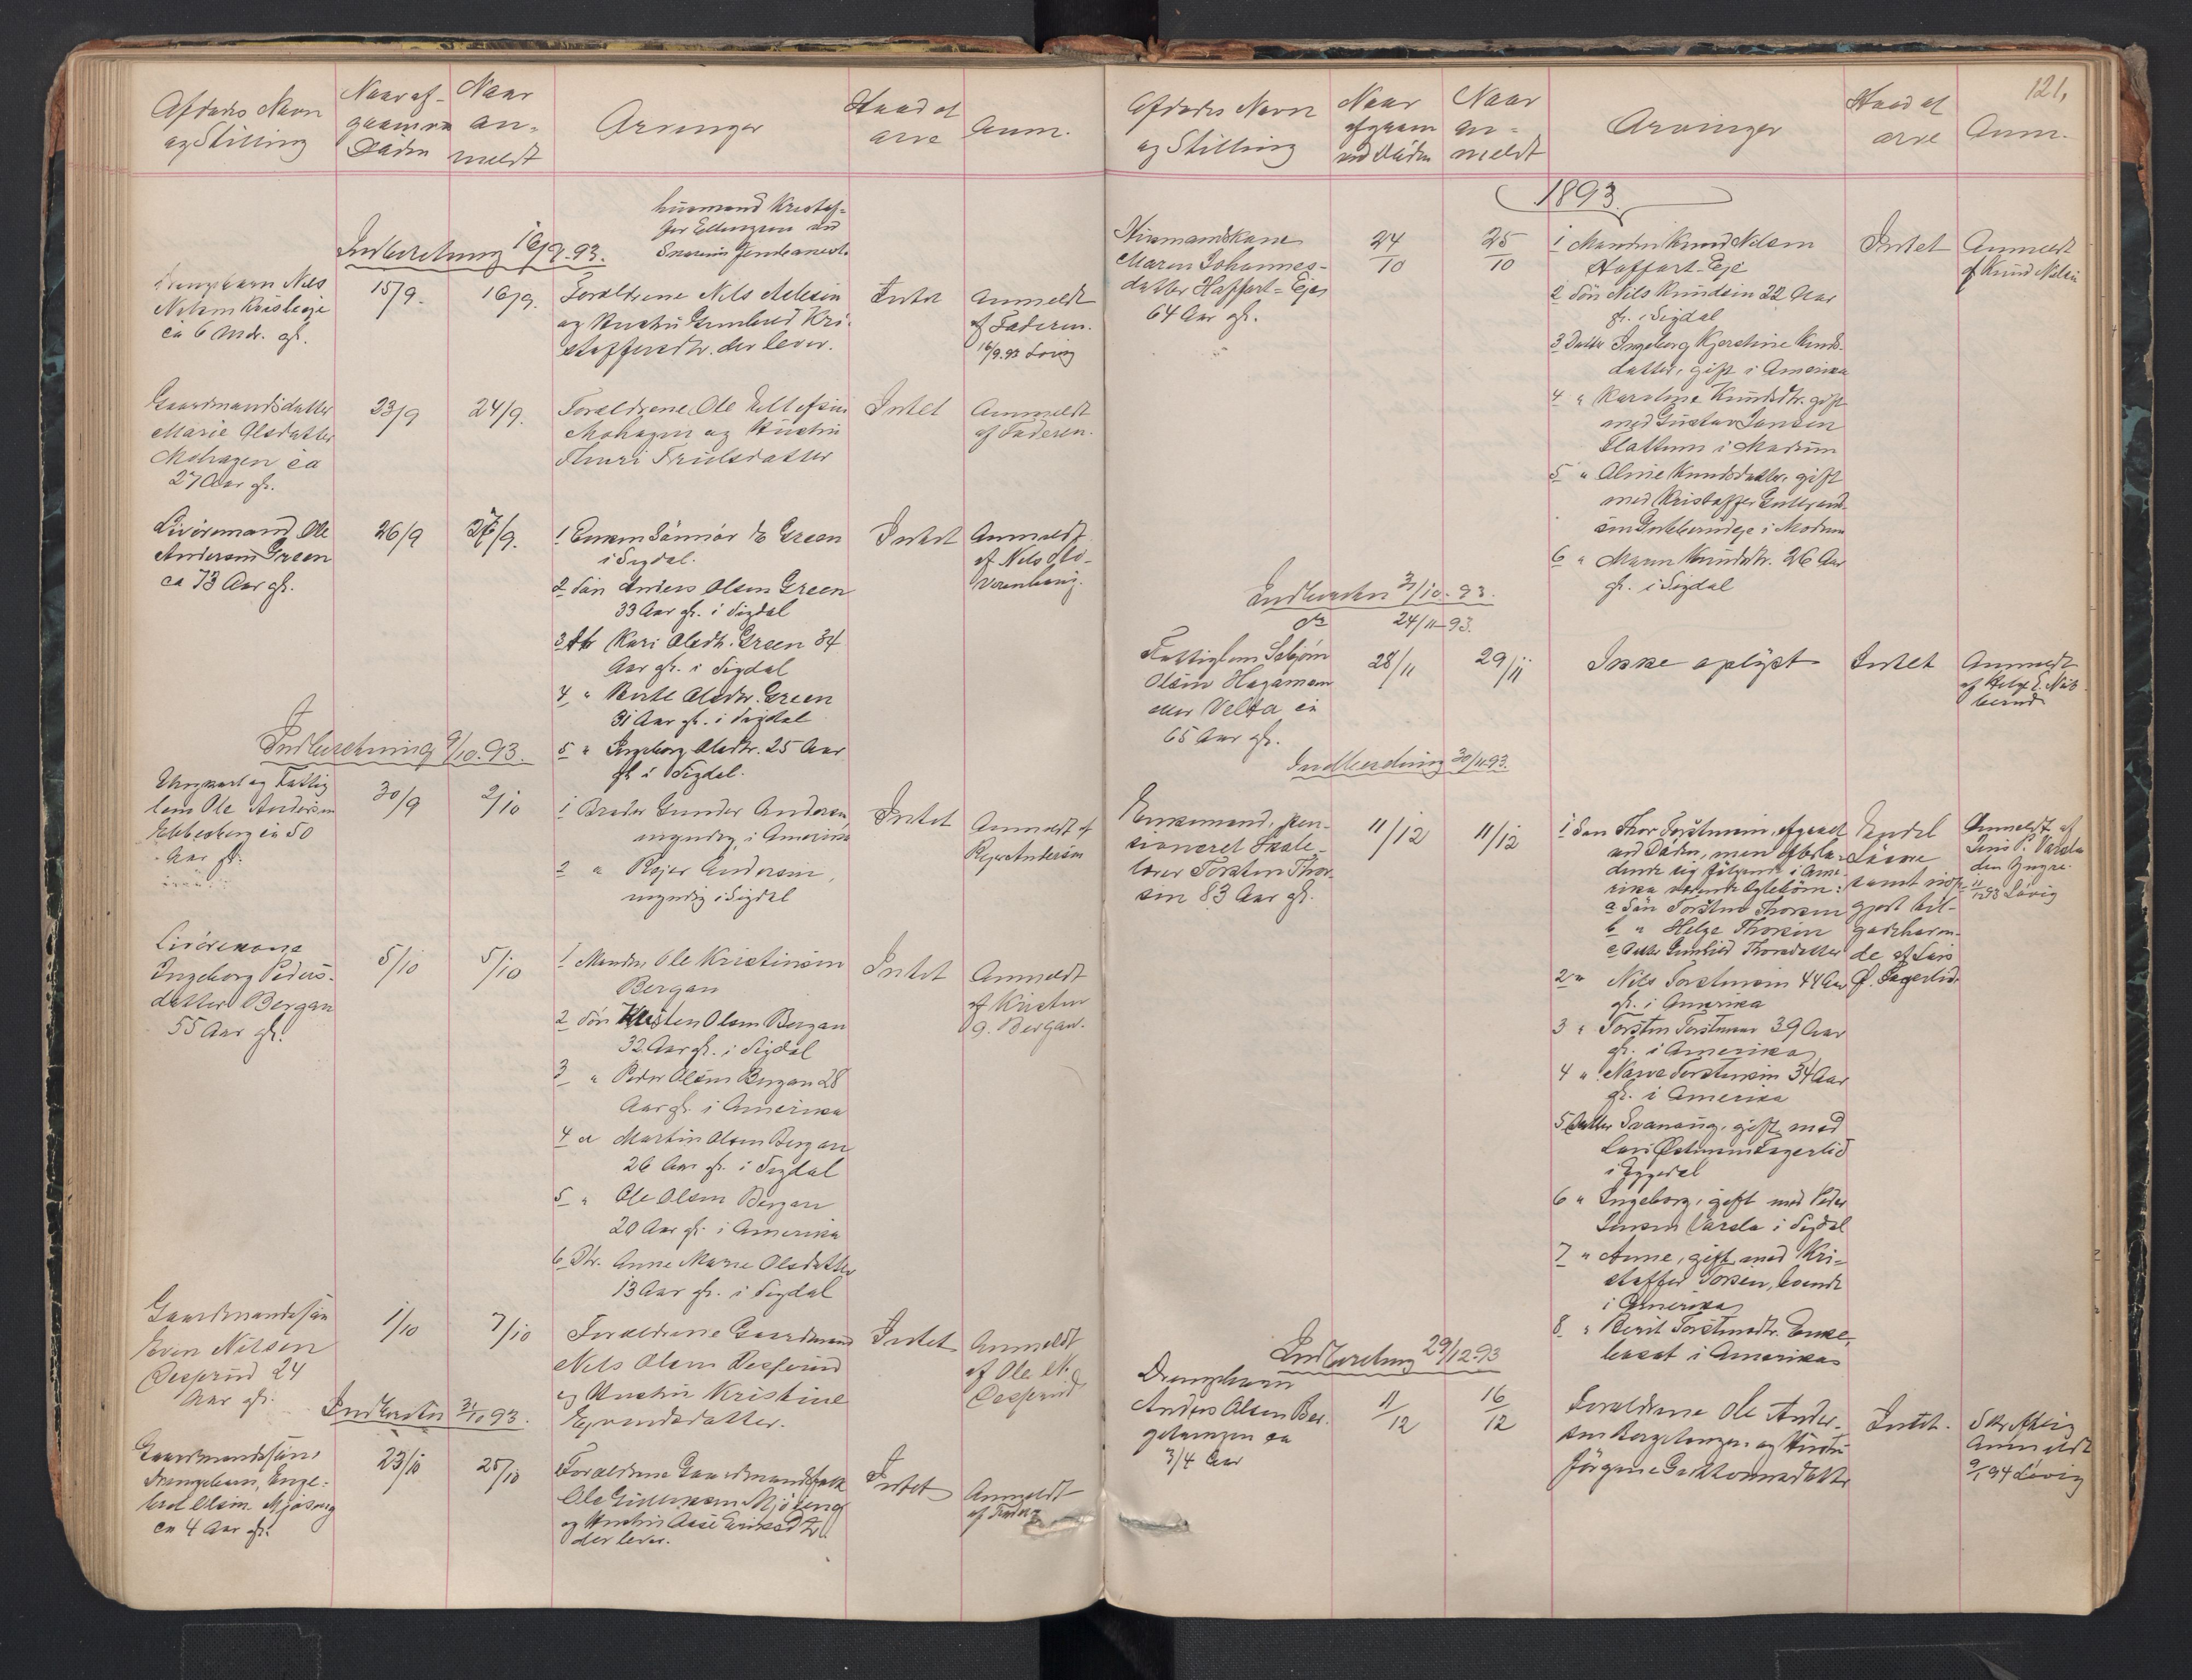 Afdødes Navn
og Stilling
Naar af-
gaaen ved
Døden
Naar
an-
meldt
Arvinger
Hvad at
arve
Anm.
husmand Kristof-
fer Ellingsen ved
Indberetning 16/9.93.
Drengebarn Nils
Nilsen
ca 6 Mdr. gl.
15/9.
16/9.
Forældrene Nils Nilsen
og Hustru Gunhild Kri-
stoffersdtr. der lever.
Intet
Anmeldt
af Faderen.
16/9.93 Løvig
Gaardmandsdatter
Marie Olsdatter
Mohagen ca
27 Aar gl.
23/9
24/9.
Forældrene Ole Ellefsen
Mohagen og Hustru
Thuri Trulsdatter
Intet
Anmeldt
af Faderen.
Livøremand Ole
Andersen Green
ca 73 Aar gl.
26/9
27/9.
1 Enken Gunnor Green
i Sigdal.
2 Søn Anders Olsen Green
33 Aar gl. i Sigdal
3 Dtr Kari Olsdtr. Green 34
Aar gl. i Sigdal
4 " Berte Olsdtr. Green
31 Aar gl. i Sigdal
5 " Ingeborg Olsdtr. 25 Aar
gl. i Sigdal.
Intet
Anmeldt
af Nils
Indberetning 9/10.93.
Ungkarl og Fattig
lem Ole Andersen
Ebbesberg ca 50
Aar gl.
30/9
2/10
1 Broder Gunder Andersen,
myndig, i Amerika
2 " Reier Andersen,
myndig i Sigdal
Intet
Anmeldt af
Reier Andersen
Livørekone
Ingeborg Peders-
datter Bergan
55 Aar gl.
5/10
5/10
1 Manden Ole Kristensen
Bergan
2 Søn Kristen Olsen Bergan
32 Aar gl. i Sigdal
3 " Peder Olsen Bergan 28
Aar gl. i Amerika
4 " Martin Olsen Bergan
26 Aar gl. i Sigdal
5 " Ole Olsen Bergan
20 Aar gl. i Amerika
6 Dtr. Anne Marie Olsdatter
13 Aar gl. i Sigdal
Intet
Anmeldt
af Kristen
O. Bergan.
Gaardmandssøn
Even Nilsen
Desserud 24
Aar gl.
1/10
7/10
Forældrene Gaardmand
Nils Olsen Desserud
og Hustru Kristine
Eyvindsdatter.
Intet
Anmeldt
af Ole N.
Desserud
Indberetn 31/10 93.
Gaardmandssøn,
Drengebarn, Enge-
bret Olsen Mjøseng
ca 4 Aar gl.
23/10
25/10
Forældrene Gaardmandsfolk
Ole Gulliksen Mjøseng
og Hustru Aase Eriksdtr
der lever.
Intet
Anmeldt
af Fader
121,
Afdødes Navn
og Stilling
Naar
afgaaen
ved Døden
Naar
an-
meldt
Arvinger
Hvad at
arve
Anm.
1893.
Husmandskone
Maren Johannes-
datter Haffart-Eje
64 Aar gl.
24/10
25/10
1 Manden Knud Nilsen
Haffart-Eje
2 Søn Nils Knudsen 22 Aar
gl. i Sigdal
3 Datter Ingeborg Kjerstine Knuds-
datter, gift i Amerika
4 " Karoline Knudsdtr. gift
med Gustav Jansen
Slattum i Modum
5 " Oline Knudsdatter, gift
med Kristoffer Gulbrand-
sen i Modum
6 " Maren Knudsdtr. 26 Aar
gl. i Sigdal
Intet
Anmeldt
af Knud Nilsen
Indberetn 31/10.93.
do 24/11-93.
Fattiglem Sebjørn
Olsen Hagamoen
eller Velta ca
65 Aar gl.
28/11
29/11
Ikke oplyst
Intet
Anmeldt
af Helge E.
Indberetning 30/11.93.
Enkemand, pen-
sioneret Skole-
lærer Torsten Thor-
sen 83 Aar gl.
11/12
11/12
1 Søn Thor Torstensen, afgaaet
ved Døden, men efterla-
dende sig følgende i Ame-
rika værende Egtebørn:
a Søn Torsten Thorsen
b " Helge Thorsen
c Datter Gunhild Thorsdatter
2 " Nils Torstensen 44 Aar
gl. i Amerika
3 " Torsten Torstensen 39 Aar
gl. i Amerika
4 " Narve Torstensen 34 Aar
gl. i Amerika
5 Datter Svanaug, gift med
Lars Østensen Fagerlid
i Eggedal
6 " Ingeborg, gift med Peder
Jensen Varsla i Sigdal
7 " Anne, gift med Kri-
stoffer Torsen, boende
i Amerika
8 " Berit Torstensdtr. Enke,
bosat i Amerika
Endel
Løsøre
samt
gjort til-
godehaven-
de af Lars
Ø. Fagerlid.
Anmeldt af
Jens P. Varsla
den Yngre.
11/12 93 Løvig
Indberetning 29/12.93
Drengebarn
Anders Olsen Ber-
getangen ca
3/4 Aar
11/12
16/12
Forældrene Ole Ander-
sen Bergetangen og Hustru
Jørgine Guttormsdatter
Intet.
Anmeldt
9/1 94 Løvig